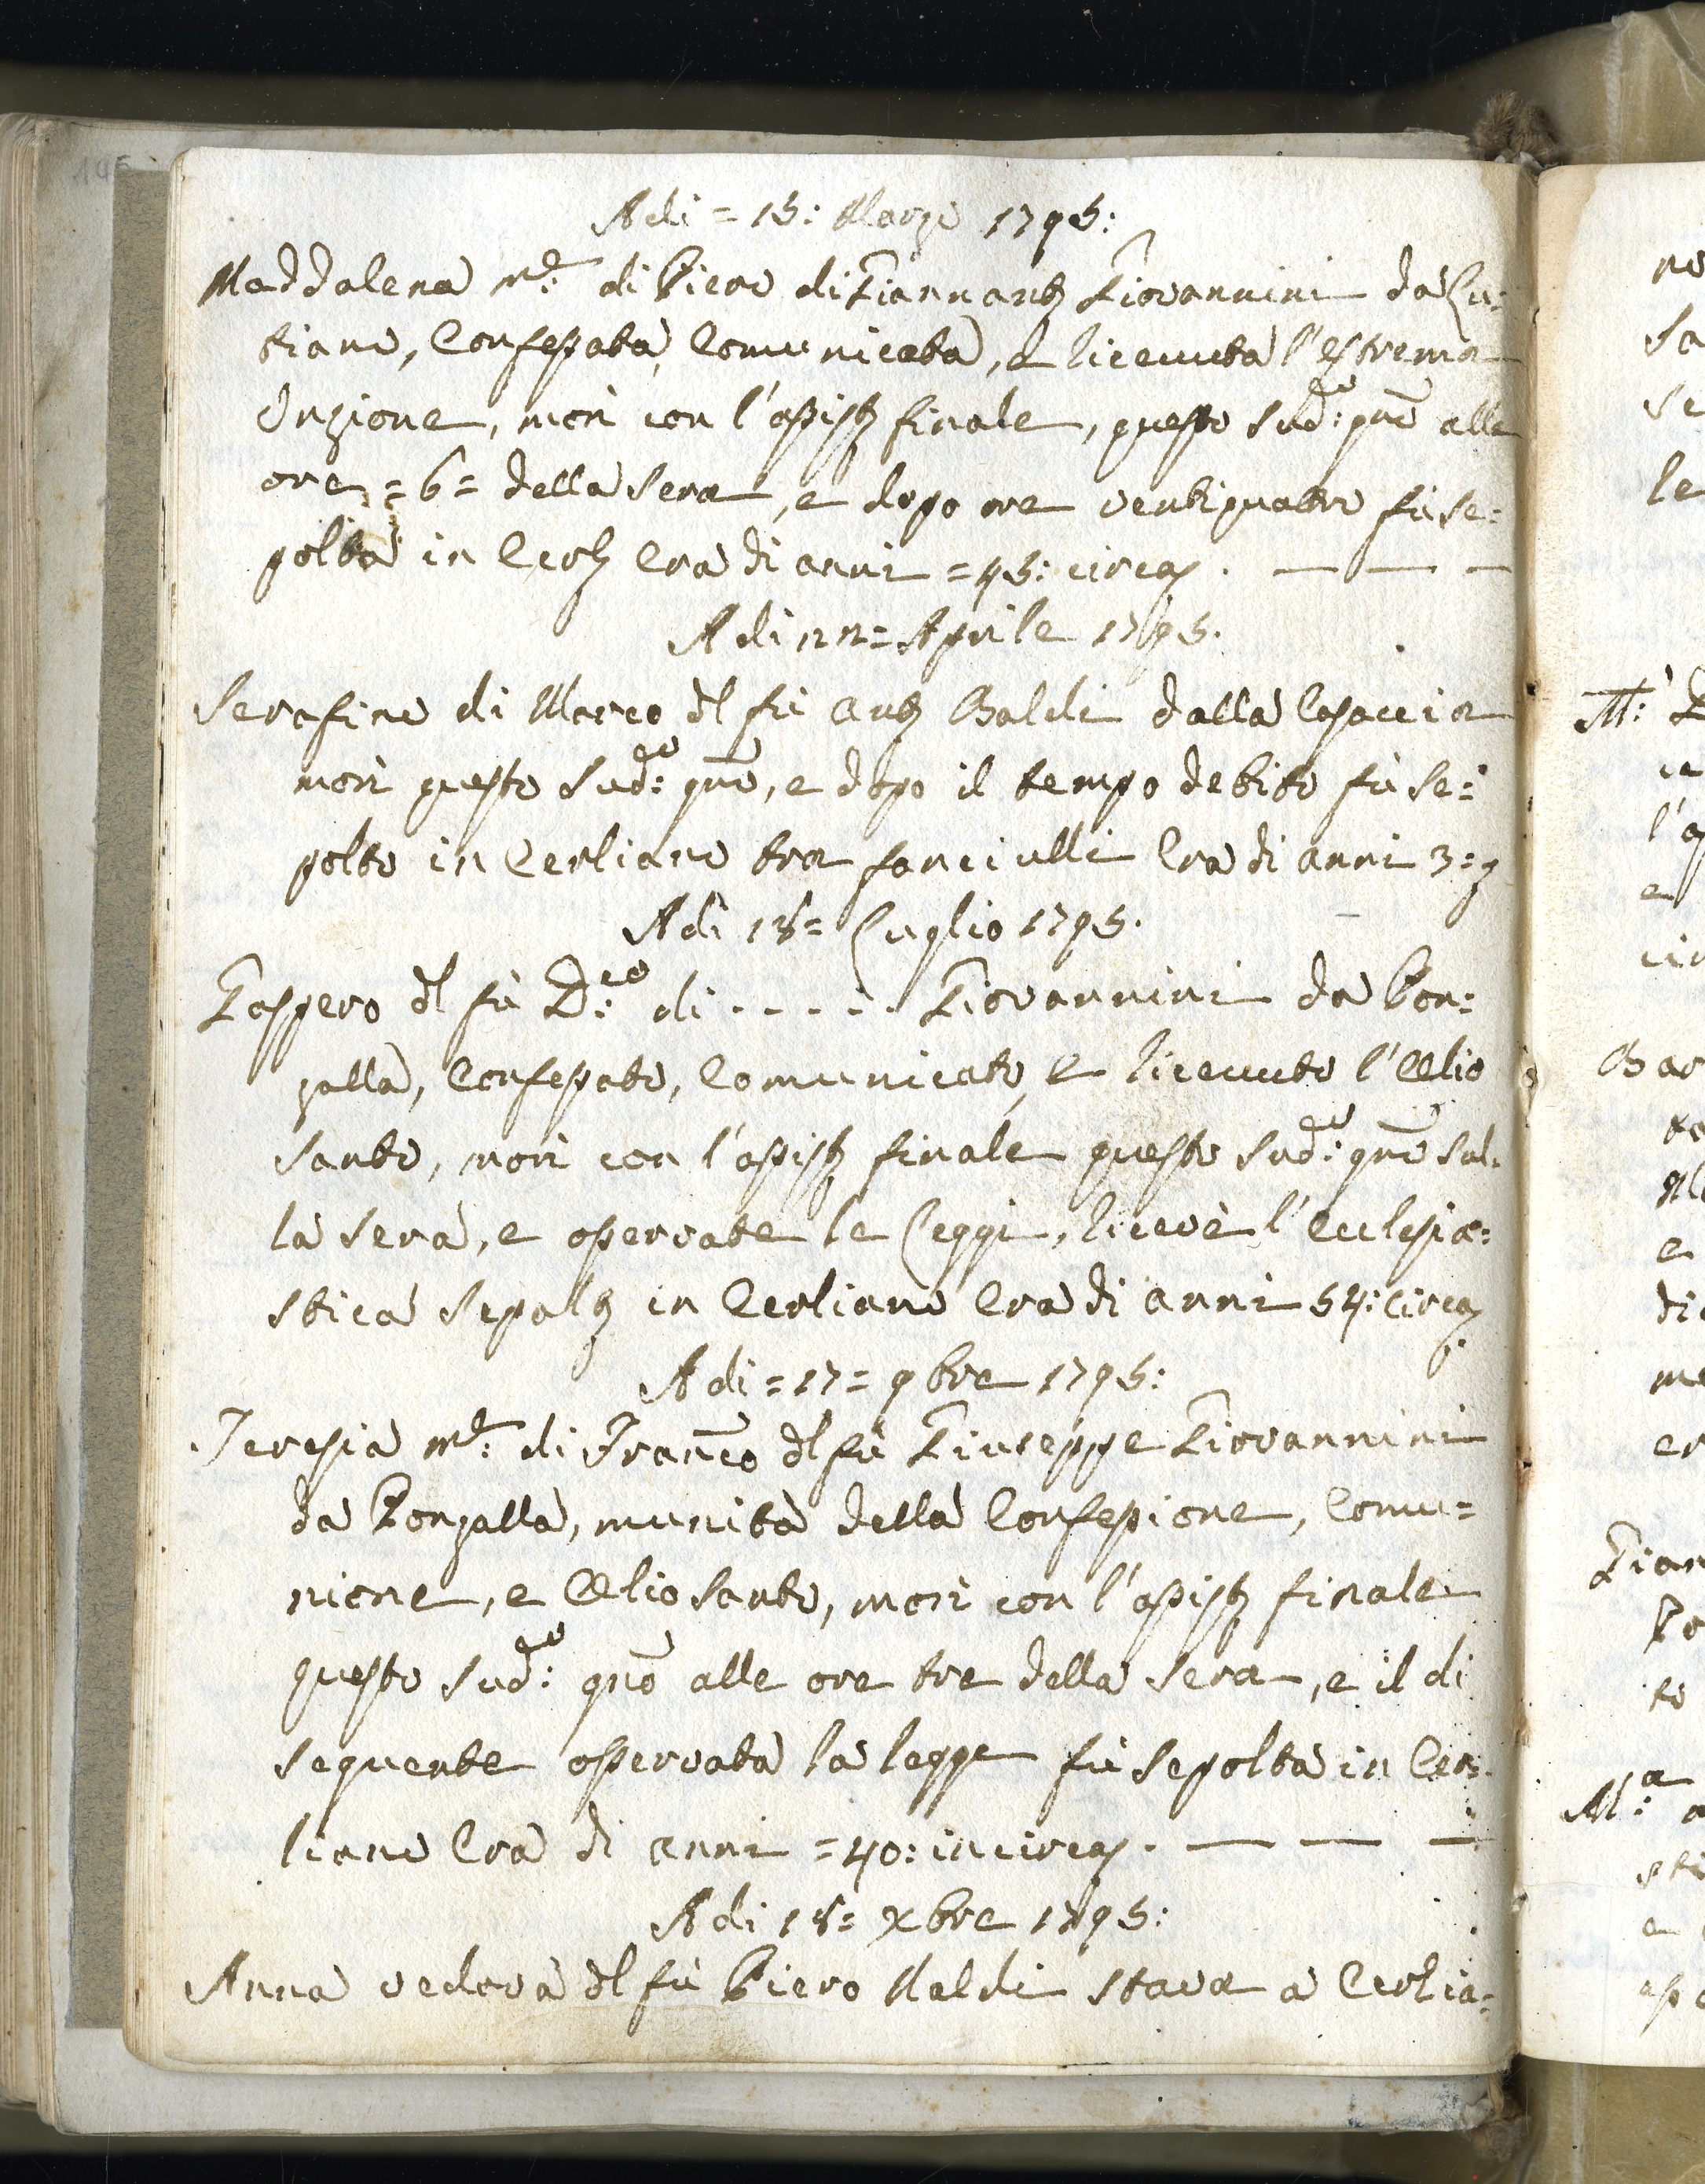 Adi = 15: Marzo 1795:
Maddalena m:e di Piero di Giannant.o Giovannini da Cu:
tiano, Confessata, Comunicata, e ricevuta l'estrema
Unzione, morì con l'assist.a finale, questo sud:do gno alle
ore = 6 = della sera, e dopo ore ventiquattro fù se:
polta in Cerl.o Era di anni = 45: circa. — — —
Adi 22 = Aprile 1795.
Serafino di Marco dl fù Ant.o Baldi dalla Casaccia
morì questo sud:do gno, e dopo il tempo debito fù se:
polto in Cerliano tra fanciulli Era di anni 3:
Adi 18 = Luglio 1795.
Gaspero dl fù D:co di . . . . . . Giovannini da Pon:
zalla, Confessato, Comunicato, e ricevuto l'Olio
santo, morì con l'assist.a finale questo sud:do gno sul:
la sera, e osservate le Leggi, ricevè l'Ecclesia:
stica sepolt.a in Cerliano Era di anni 54: circa
Adi = 17 = 9bre 1795:
Teresia m:e di Franco dl fù Giuseppe Giovannini
da Ponzalla, munita della Confessione, Comu=
nione, e Olio santo, morì con l'assist.a finale
questo sud:do gno alle ore tre della sera, e il dì
sequente osservata la legge fù sepolta in Cer:
liano Era di anni = 40: in circa. — — —
Adi 18 = Xbre 1795:
Anna vedova dl fù Piero Naldi stava a Cerlia: